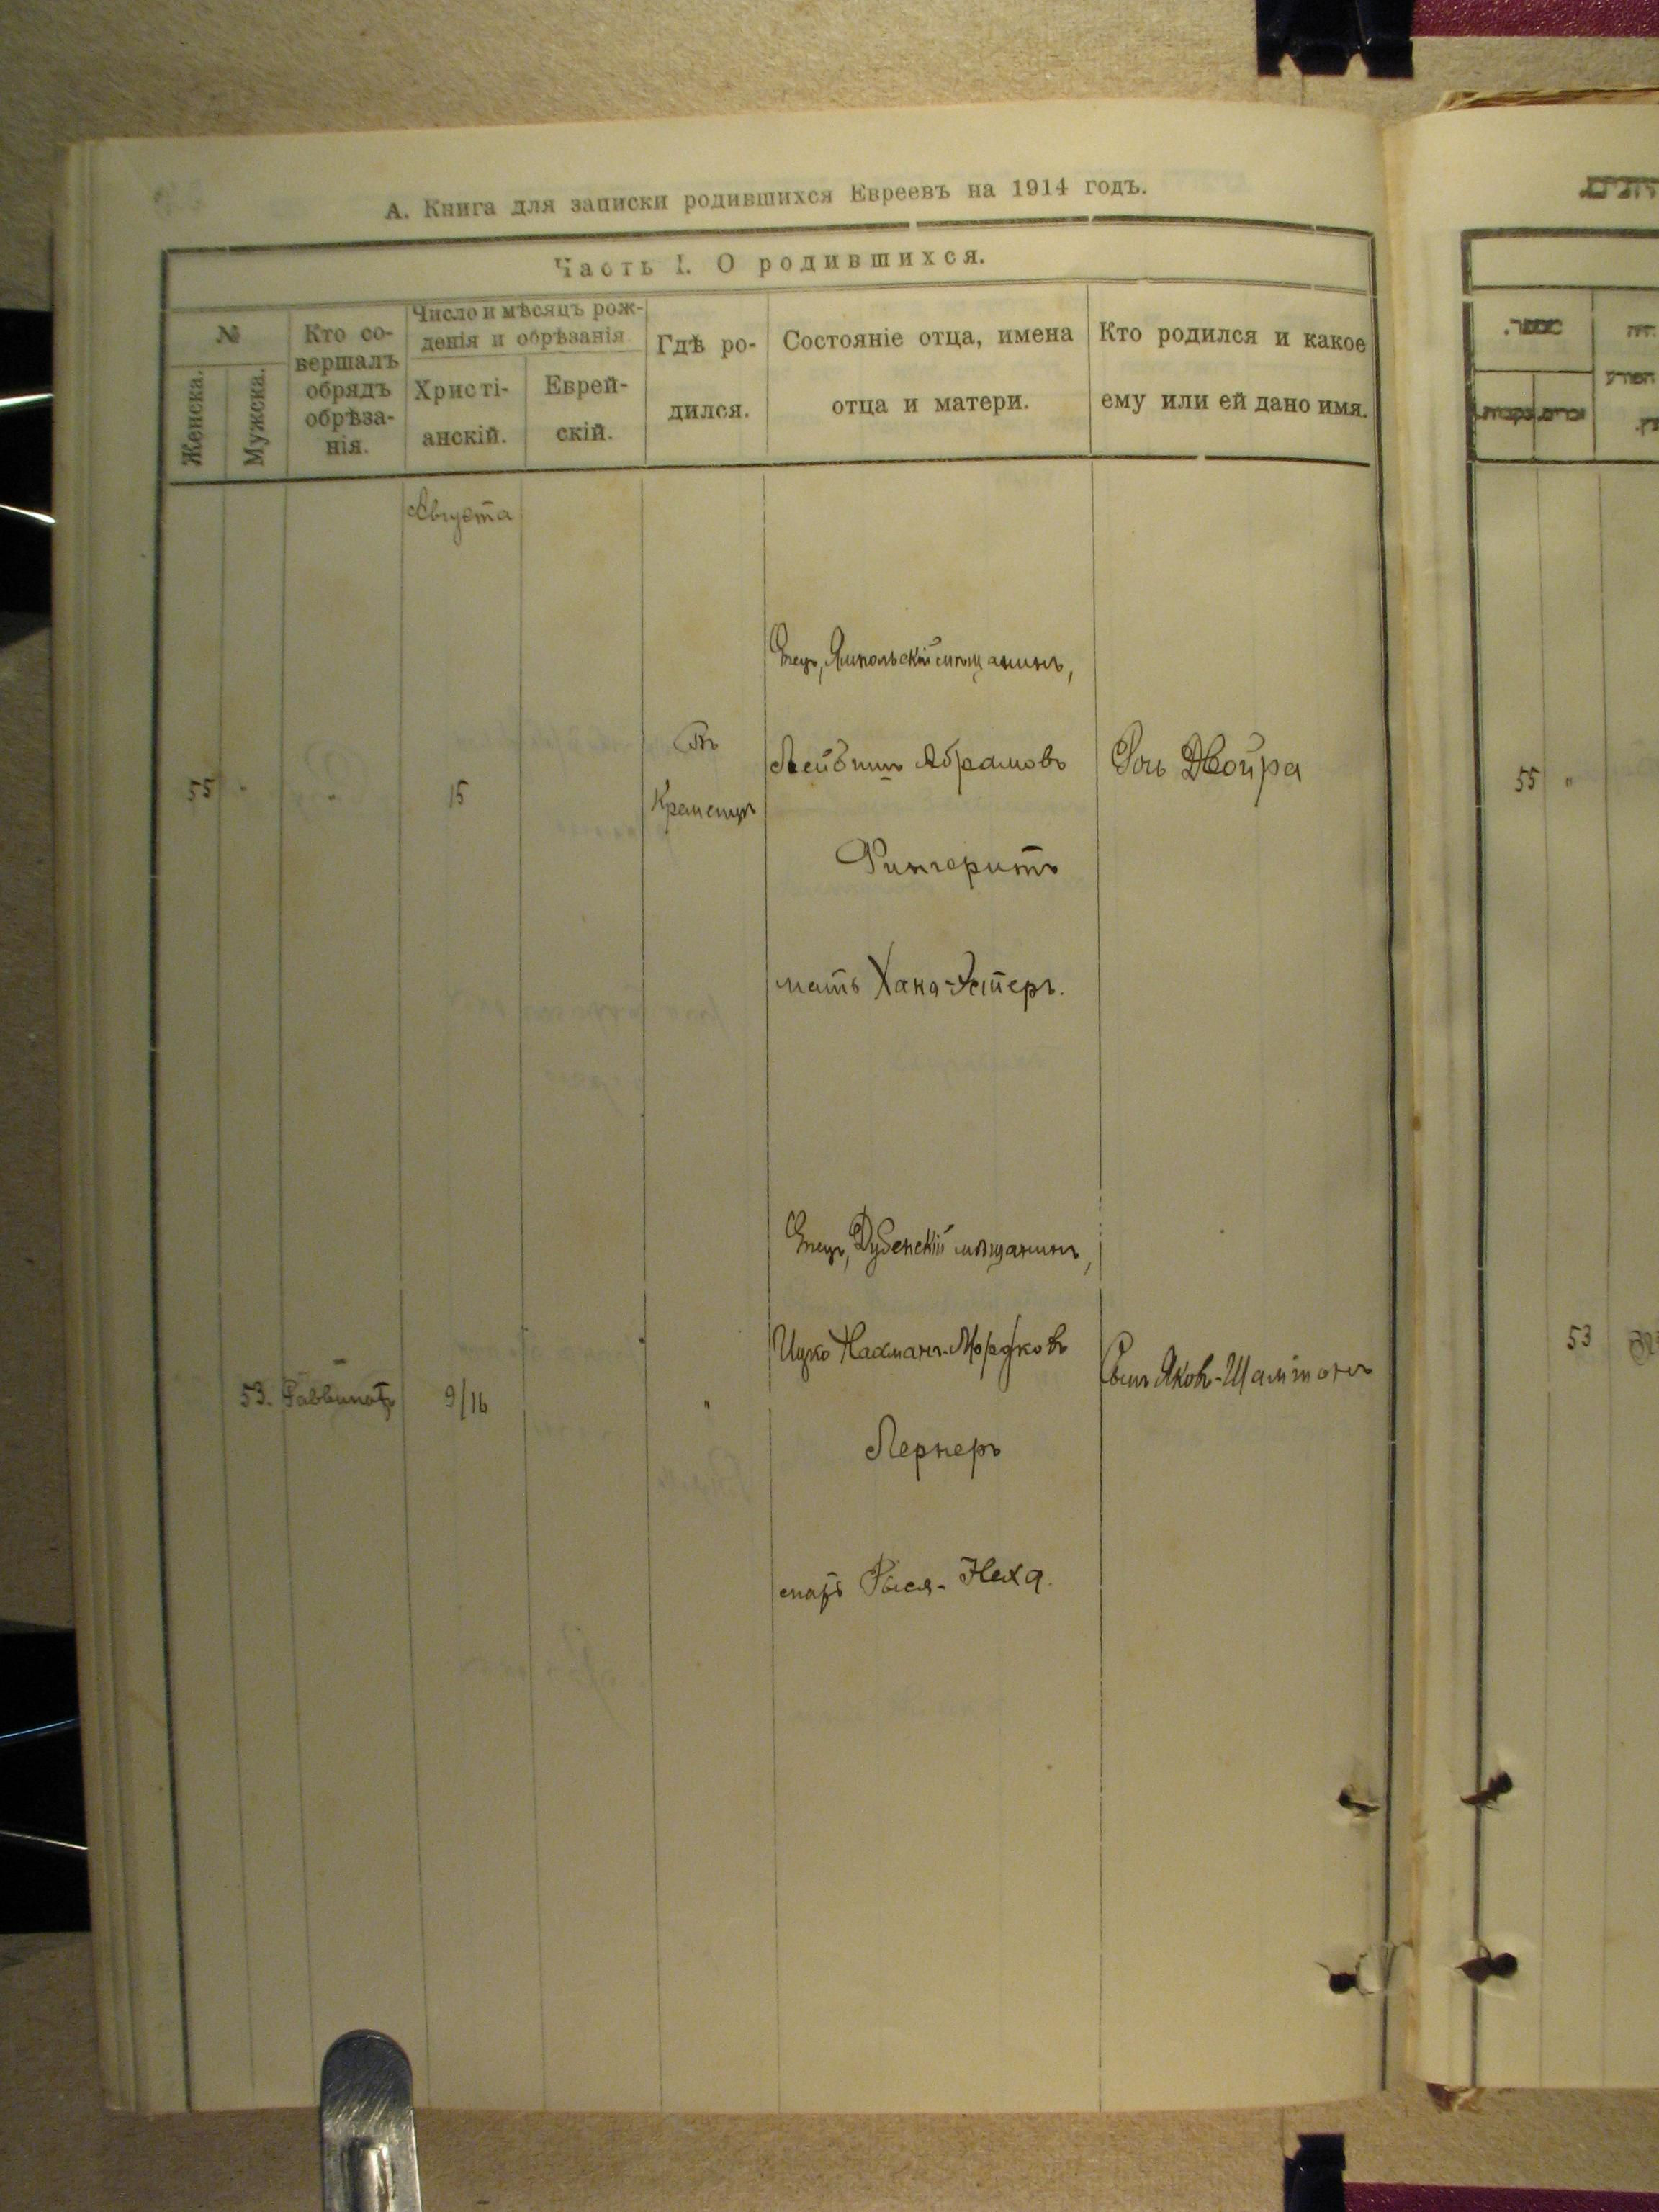 А. Книга для записки родившихся Евреевъ на 1914 годъ.
Часть I. О родившихся.
№
Женска.
Мужска.
Кто со-
вершалъ
обрядъ
обрѣза-
нія.
Число и мѣсяцъ рож-
денія и обрѣзанія
Христі-
анскій.
Еврей-
скій.
Гдѣ ро-
дился.
Состояніе отца, имена
отца и матери.
Кто родился и какое
ему или ей дано имя.
Августа
Отецъ, Ямпольскій мѣщанинъ,
55 " " 15
Въ
Кременцѣ
Лейбишъ Абрамовъ
Фингеритъ
мать Хана-Эстеръ.
Дочь Двойра
Отецъ, Дубенскій мѣщанинъ,
53. Раввинатъ 9/16 "
Ицко Нахманъ-Мордковъ
Лернеръ
мать Рыся-Неха.
Сынъ Яковъ-
55 "
53